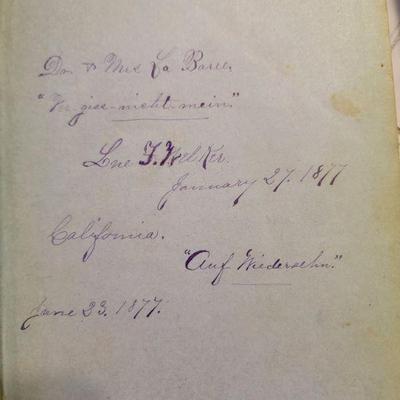 Dr. & Mrs La Barre.
"Vergiss-nicht-mein."
F. Welker.
January 27. 1877
California.
"Auf Wiedersehn."
June 23. 1877.